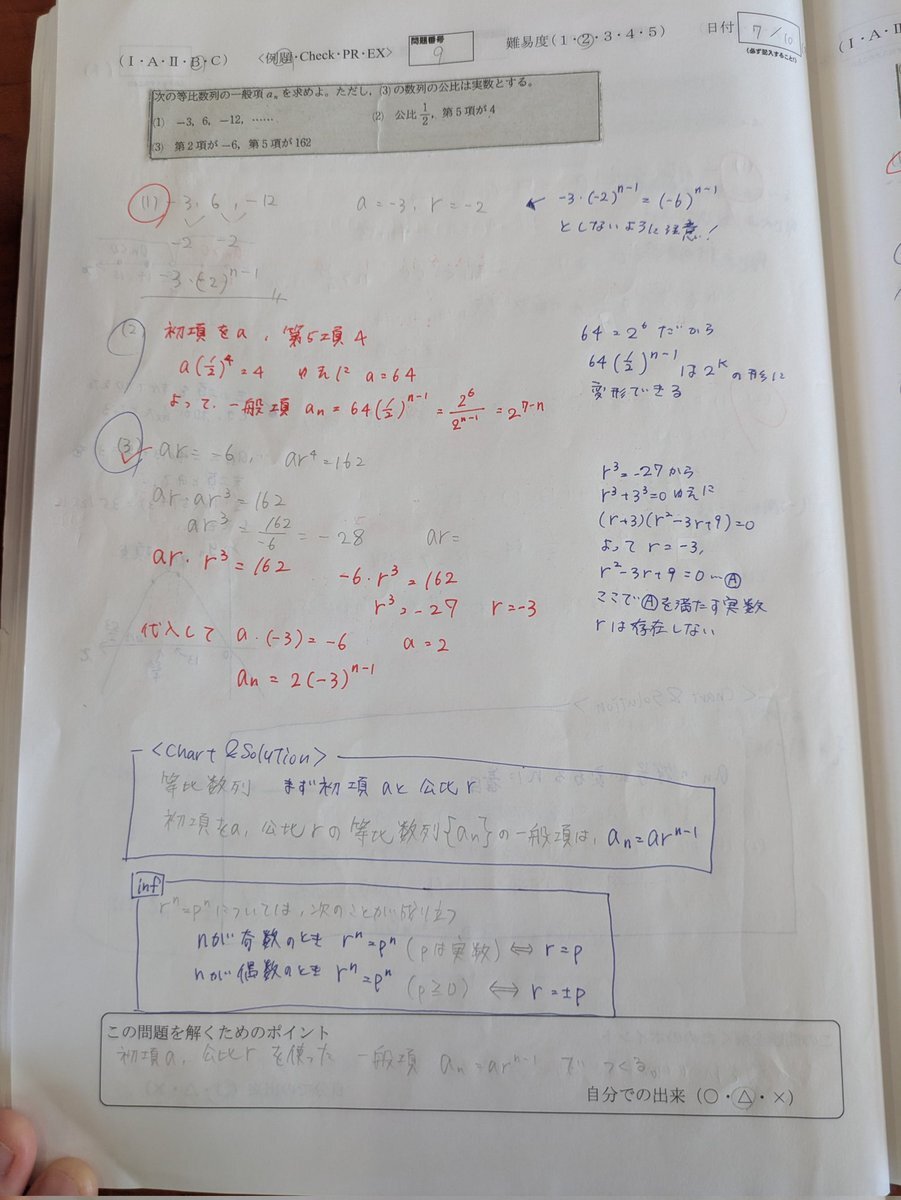 (Ⅰ・A・Ⅱ・B・C) <例題・Check・PR・EX> 問題番号 9 難易度(1・2・3・4・5) 日付 7/10
(必ず記入すること!)
(Ⅰ・A・Ⅱ
次の等比数列の一般項 aₙ を求めよ。ただし,(3)の数列の公比は実数とする。
(1) -3, 6, -12, …… (2) 公比 1/2, 第5項が4
(3) 第2項が-6, 第5項が162
(1) -3, 6, -12 a=-3, r=-2
-2 -2
-3・(-2)ⁿ⁻¹
← -3・(-2)ⁿ⁻¹=(-6)ⁿ⁻¹
としないように注意!
(2) 初項をa, 第5項4
a(1/2)⁴=4 ゆえに a=64
よって、一般項 aₙ=64(1/2)ⁿ⁻¹=2⁶/2ⁿ⁻¹=2⁷⁻ⁿ
64=2⁶だから
64(1/2)ⁿ⁻¹は2ᵏの形に
変形できる
(3) ar=-6, ar⁴=162
ar・ar³=162
ar³=162/-6=-28 ar=
ar・r³=162 -6・r³=162
r³=-27 r=-3
代入して a・(-3)=-6 a=2
aₙ=2(-3)ⁿ⁻¹
r³=-27から
r³+3³=0ゆえに
(r+3)(r²-3r+9)=0
よってr=-3,
r²-3r+9=0…Ⓐ
ここでⒶを満たす実数
rは存在しない
<Chart & Solution>
等比数列 まず初項aと公比r
初項をa, 公比rの等比数列{aₙ}の一般項は, aₙ=arⁿ⁻¹
inf
rⁿ=pⁿについては,次のことが成り立つ
nが奇数のとき rⁿ=pⁿ(pは実数)⇔ r=p
nが偶数のとき rⁿ=pⁿ(p≧0)⇔ r=±p
この問題を解くためのポイント
初項a, 公比rを使った 一般項 aₙ=arⁿ⁻¹ でつくる
自分での出来(○・△・×)